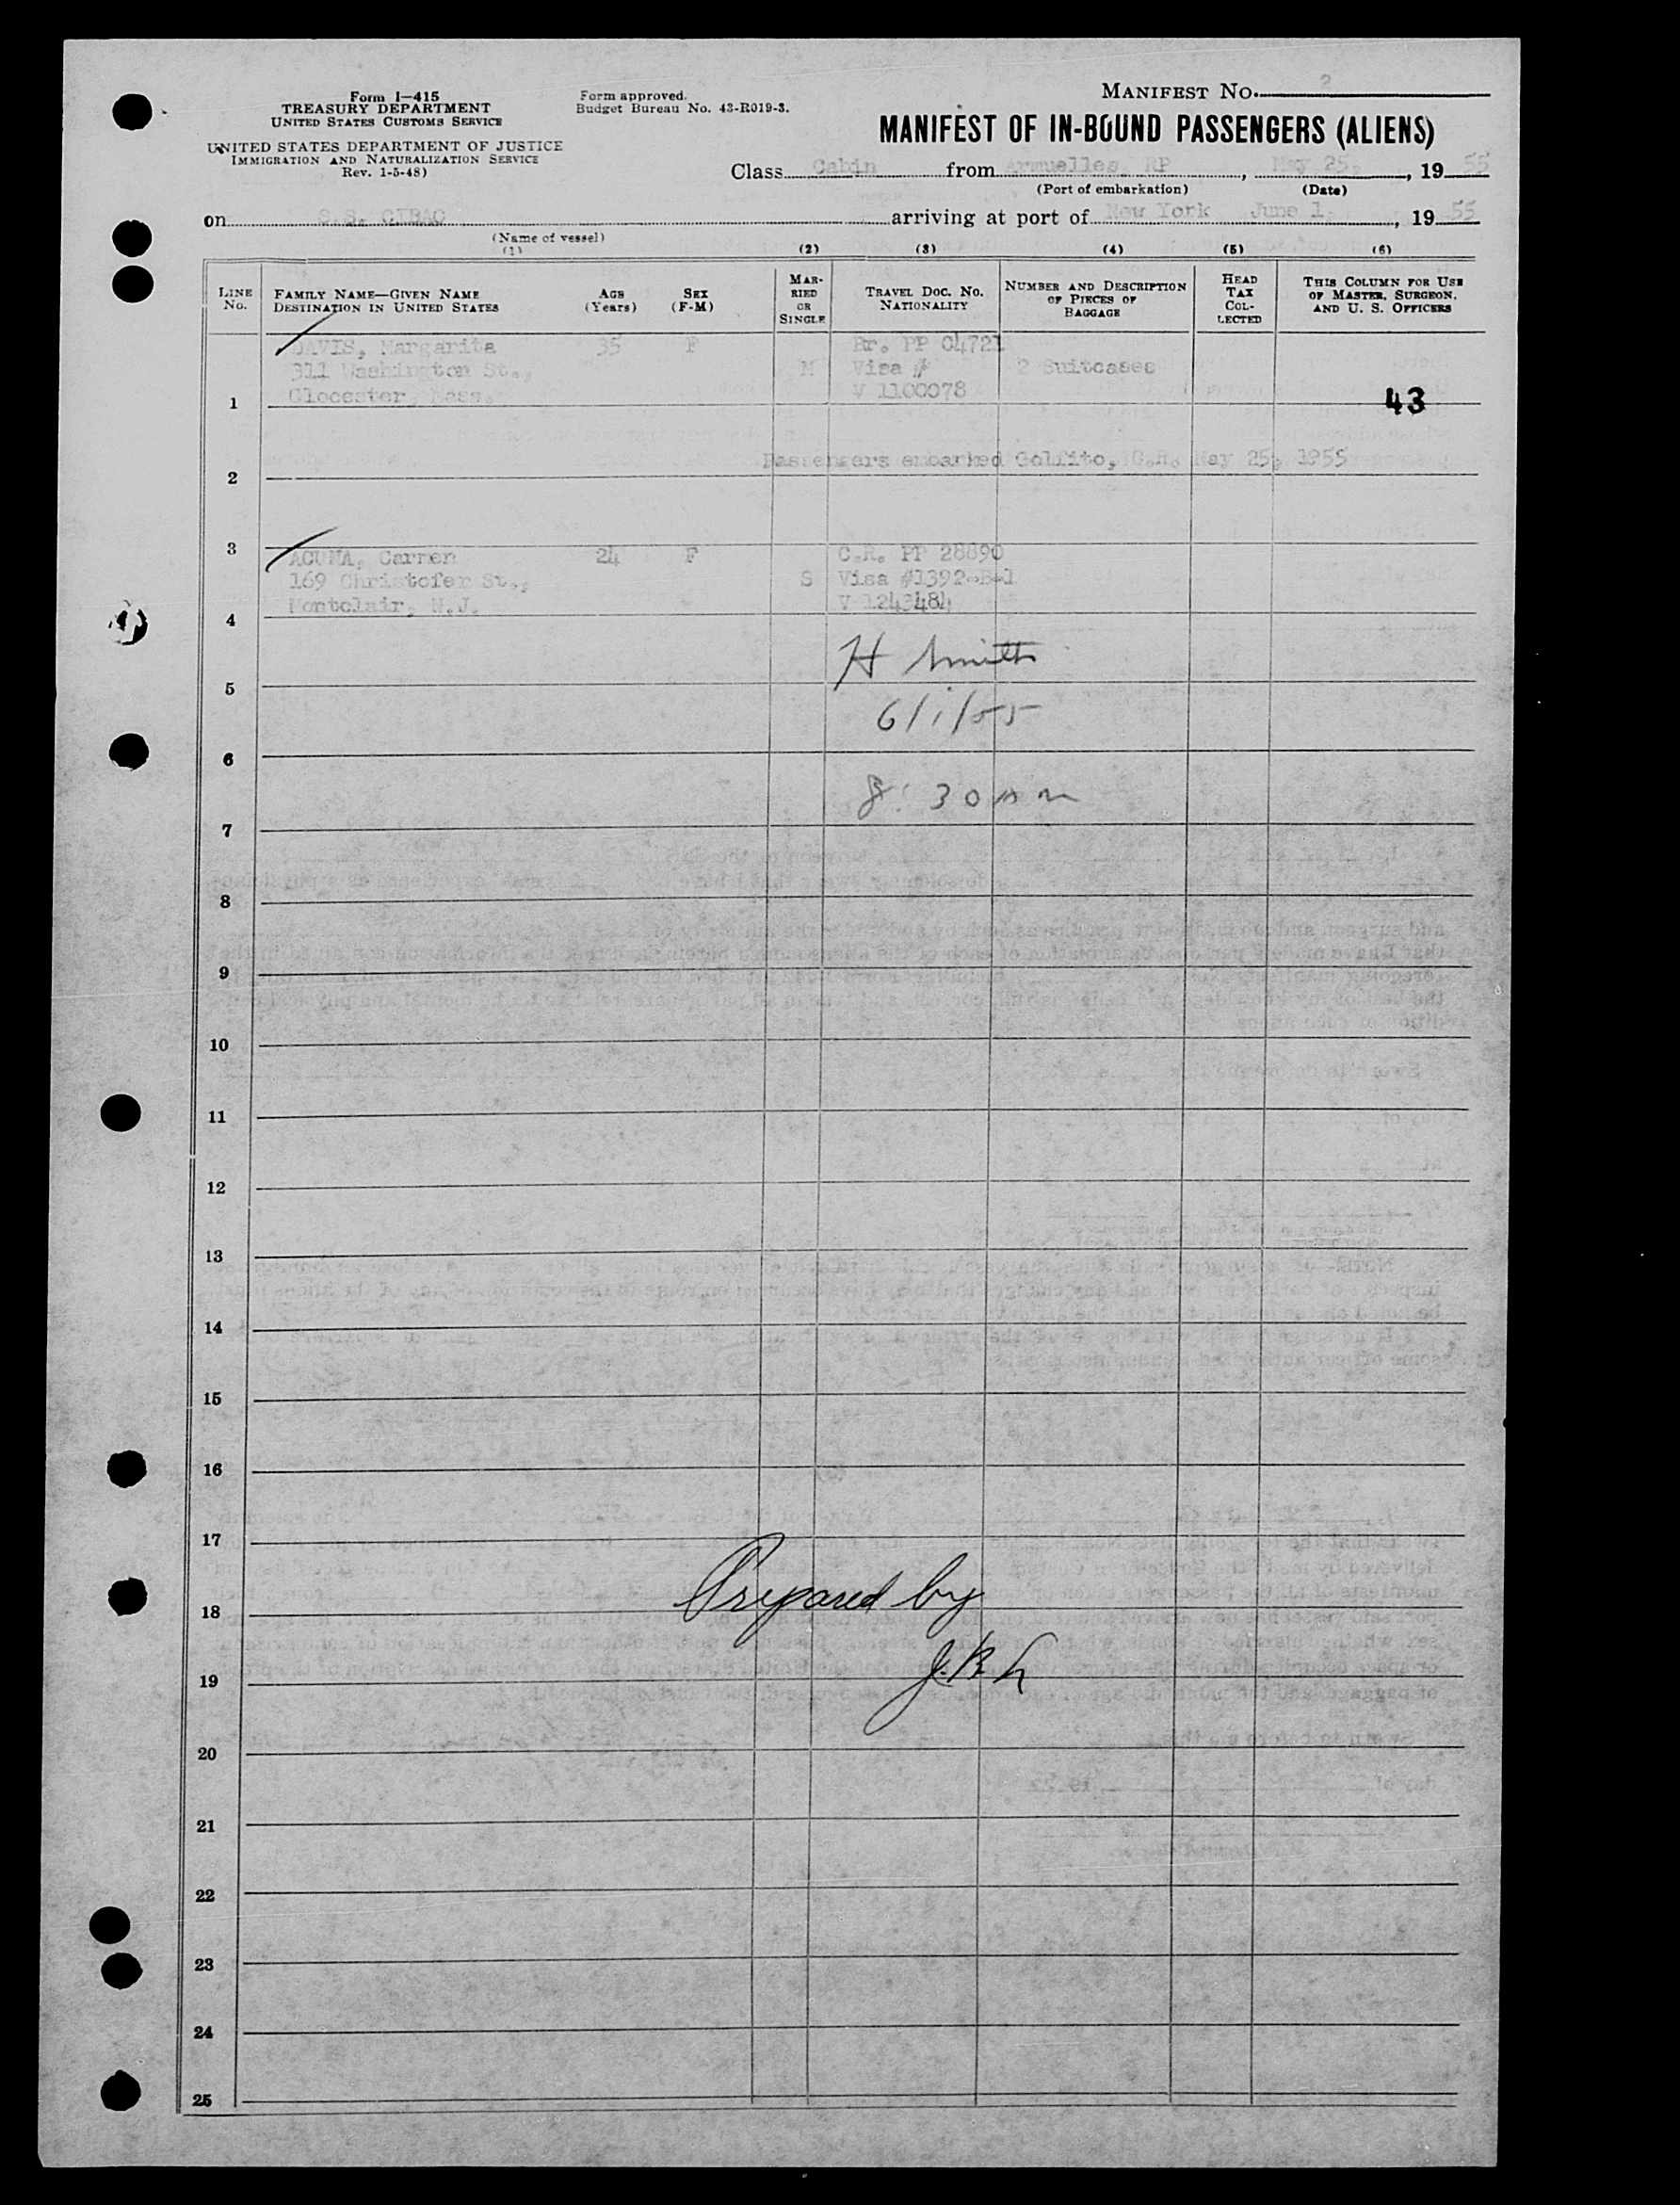 Form I-415
TREASURY DEPARTMENT
UNITED STATES CUSTOMS SERVICE
UNITED STATES DEPARTMENT OF JUSTICE
IMMIGRATION AND NATURALIZATION SERVICE
Rev. 1-5-48)
Form approved.
Budget Bureau No. 43-R019-3.
MANIFEST NO. 2
MANIFEST OF IN-BOUND PASSENGERS (ALIENS)
Class Cabin from Armuelles, RP, May 25, 1955
(Port of embarkation) (Date)
on S.S. CIBAO arriving at port of New York June 1, 1955
(Name of vessel)
(1) (2) (3) (4) (5) (6)
LINE NO.
FAMILY NAME—GIVEN NAME
DESTINATION IN UNITED STATES
AGE (Years)
SEX (F-M)
MARRIED OR SINGLE
TRAVEL DOC. NO.
NATIONALITY
NUMBER AND DESCRIPTION OF PIECES OF BAGGAGE
HEAD TAX COLLECTED
THIS COLUMN FOR USE OF MASTER, SURGEON, AND U. S. OFFICERS
DAVIS, Margarita 35 F Br. PP 04721
311 Washington St., M Visa # 2 Suitcases
Glocester, Mass. V 1100078
1 43
Passengers embarked Golfito, C.R. May 25, 1955
2
3
ACUNA, Carmen 24 F C.R. PP 28890
169 Christofer St., S Visa #1392-B-1
Montclair, N.J. V 1243484
4
H Smith
5
6/1/55
6
8:30 AM
7
8
9
10
11
12
13
14
15
16
17
Prepared by
18
19
20
21
22
23
24
25